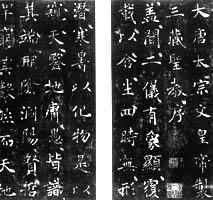 大唐太宗文皇帝製
三藏聖教序
蓋聞二儀有象顯覆
載以含生四時無形
潛寒暑以化物是以
窺天鑒地庸愚皆識
其端明陰洞陽賢哲
罕窮其數然而天地